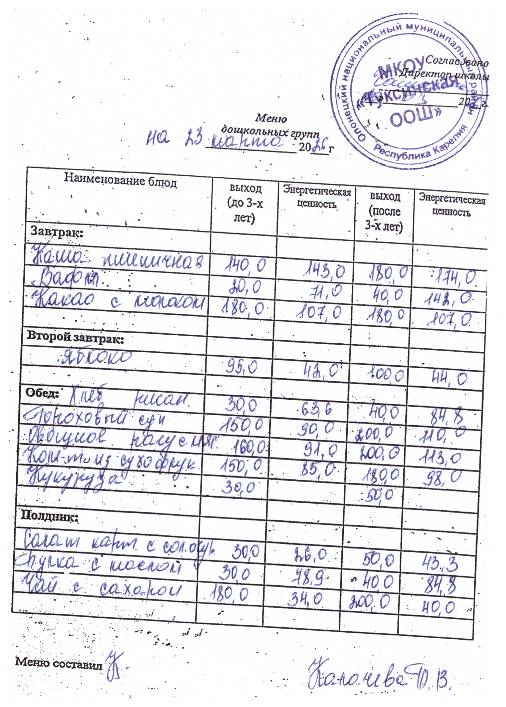 Согласовано
Директор школы
Олонецкий национальный муниципальный район
МКОУ
«Туксинская
ООШ»
Республика Карелия
Меню
дошкольных групп
на 23 марта 2026 г
Наименование блюд | выход (до 3-х лет) | Энергетическая ценность | выход (после 3-х лет) | Энергетическая ценность
Завтрак:
Каша пшеничная 140,0 143,0 180,0 174,0
Вафли 20,0 71,0 40,0 142,0
Какао с молоком 180,0 107,0 180,0 107,0
Второй завтрак:
яблоко 95,0 42,0 100,0 44,0
Обед: Хлеб ржан. 30,0 63,6 40,0 84,8
Гороховый суп 150,0 90,0 200,0 110,0
Овощное рагу с мяс. 160,0 91,0 200,0 113,0
Ком-т из сухофрук. 150,0 85,0 180,0 98,0
Кукуруза 30,0 50,0
Полдник:
Салат карт. с сол. огур. 30,0 26,0 50,0 43,3
Булка с маслом 30,0 78,9 40,0 84,8
Чай с сахаром 180,0 34,0 200,0 40,0
Меню составил